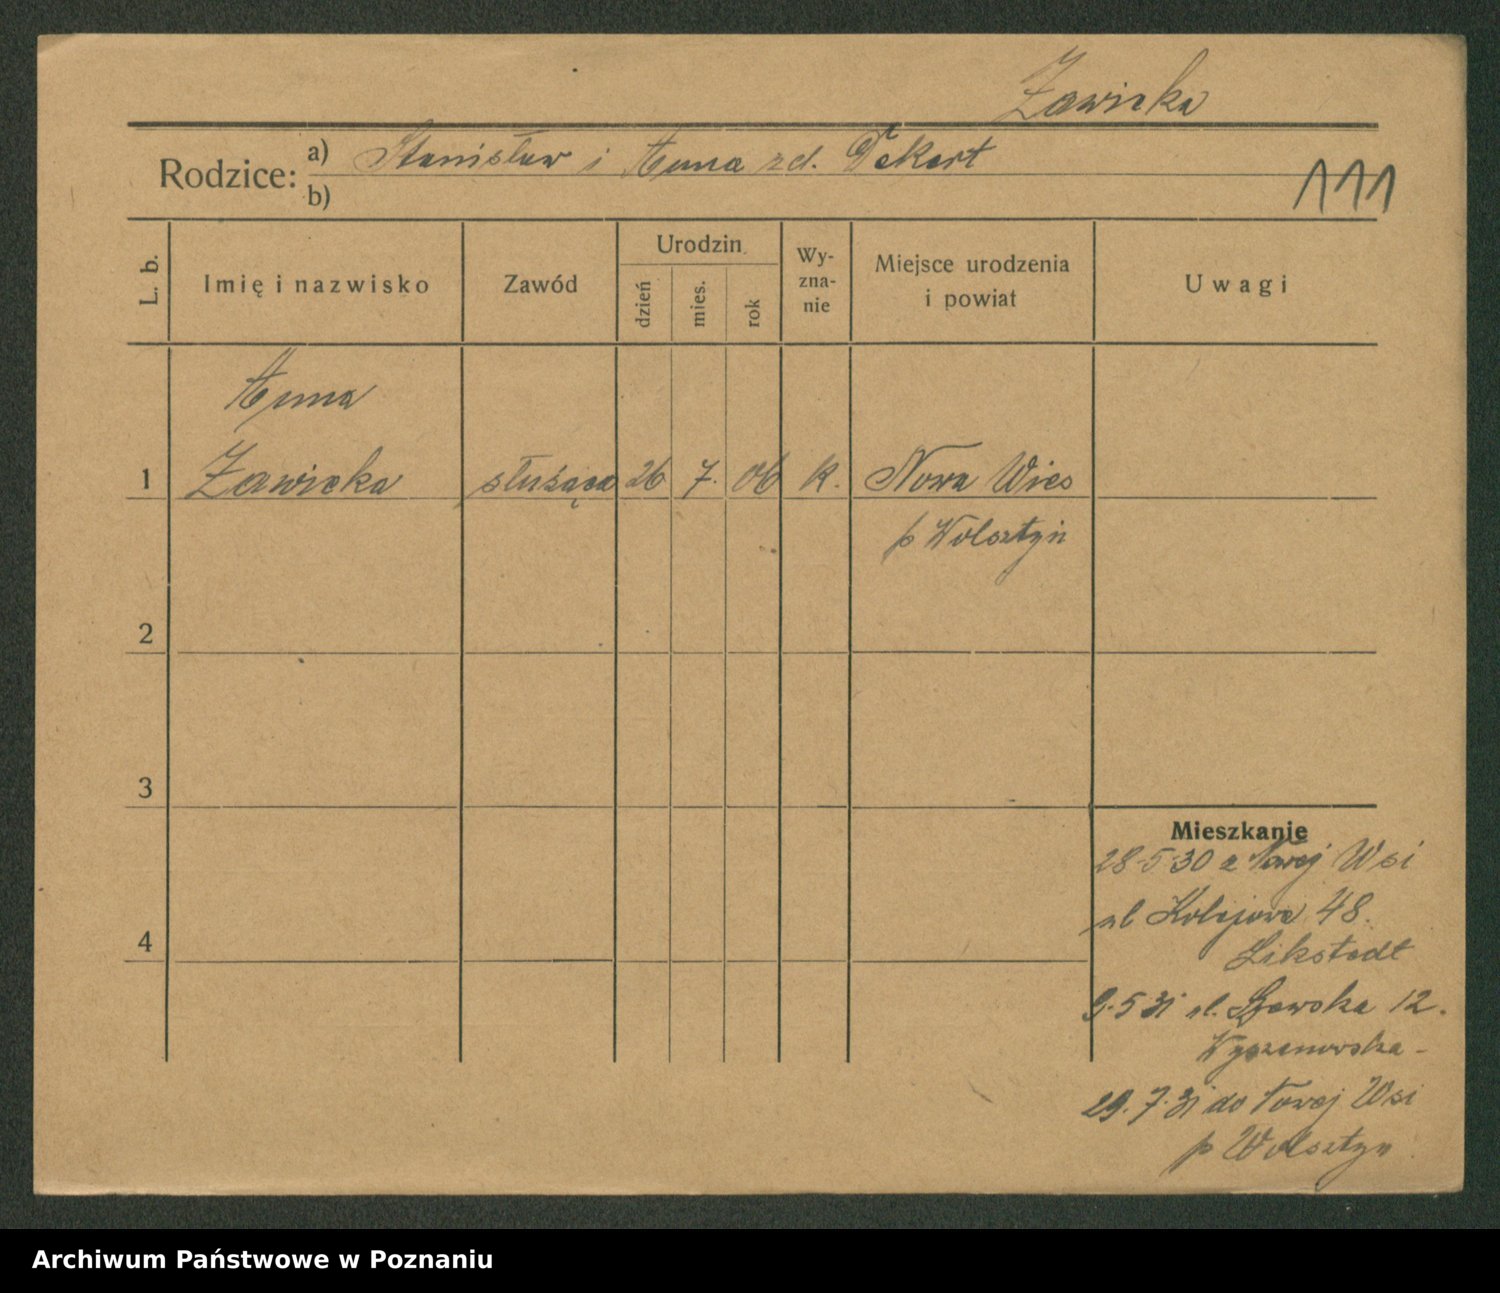 Żawicka
Rodzice: a) Stanisław i Anna zd. Dekert
b)
111
L. b.
Imię i nazwisko
Zawód
Urodzin
dzień
mies.
rok
Wy-
zna-
nie
Miejsce urodzenia
i powiat
Uwagi
Anna
1 Żawicka służąca 26 7. 06 k. Nowa Wies
p Wolsztyn
2
3
4
Mieszkanie
28-5-30 z Nowej Wsi
ul Kolejowa 48.
Likstedt
9.5 31 ul. 12.
29.7.31 do Nowej Wsi
p Wolsztyn
Archiwum Państwowe w Poznaniu